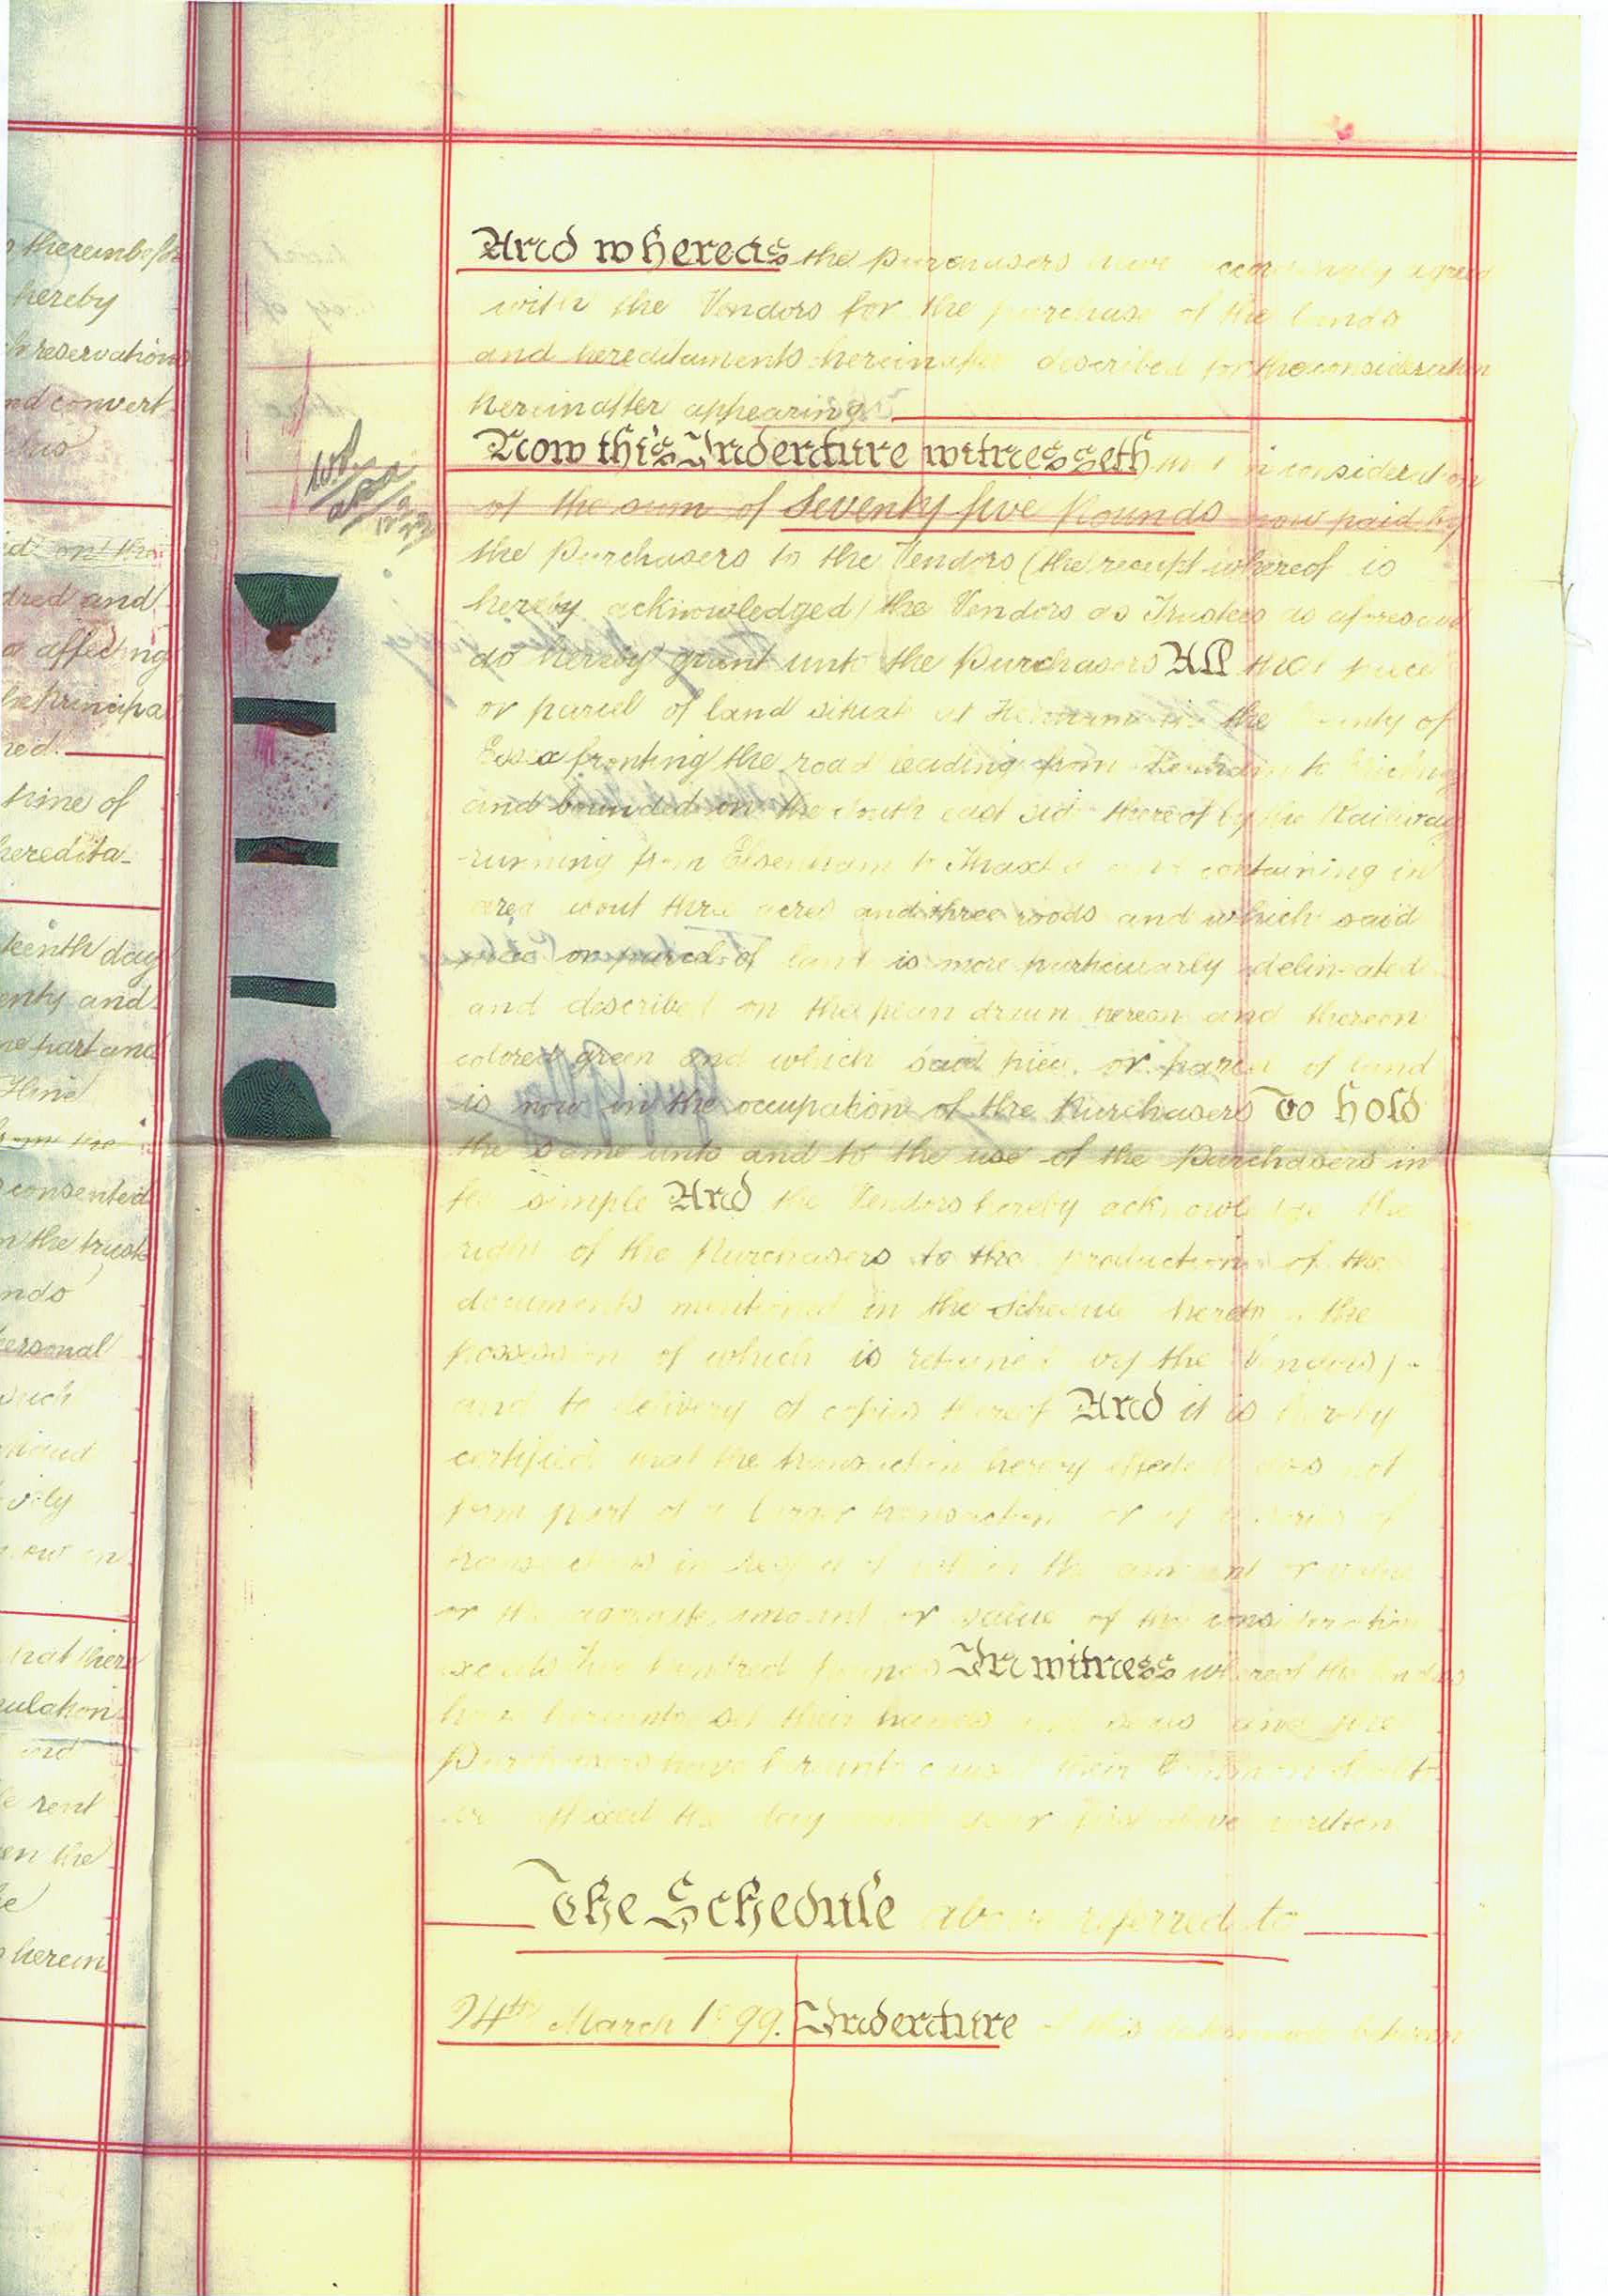 thereinbefore
hereby
reservation
nd convert
dred and
affecting
principa
red.
hine of
heredita-
teenth day
enty and
ne part and
Hine
consented
n the trust
ndo
personal
such
that there
rent
en the
herein
And whereas the Purchasers have accordingly agreed
with the Vendors for the purchase of the lands
and hereditaments hereinafter described for the consideration
hereinafter appearing
Now this Indenture witnesseth that in consideration
of the sum of Seventy five Pounds now paid by
the Purchasers to the Vendors (the receipt whereof is
hereby acknowledged) the Vendors as Trustees as aforesaid
do hereby grant unto the Purchasers All that piece
or parcel of land situate at Henham in the County of
Essex fronting the road leading from to
and bounded on the South east side thereof by the Railway
running from Elsenham to Thaxted and containing in
area about three acres and three roods and which said
piece or parcel of land is more particularly delineated
and described on the plan drawn hereon and thereon
colored green and which said piece or parcel of land
is now in the occupation of the Purchasers To hold
the same unto and to the use of the Purchasers in
fee simple And the Vendors hereby acknowledge the
right of the Purchasers to the production of the
documents mentioned in the Schedule hereto the
possession of which is retained by the Vendors)
and to delivery of copies thereof And it is hereby
certified that the transaction hereby effected does not
form part of a larger transaction or of a series of
transactions in respect of which the amount or value
or the aggregate amount or value of the consideration
exceeds Five hundred pounds In witness whereof the Vendors
have hereunto set their hands and seals and the
Purchasers have hereunto caused their Common Seal to
be affixed the day and year first above written
The Schedule above referred to
24th March 1899. Indenture of this date made between